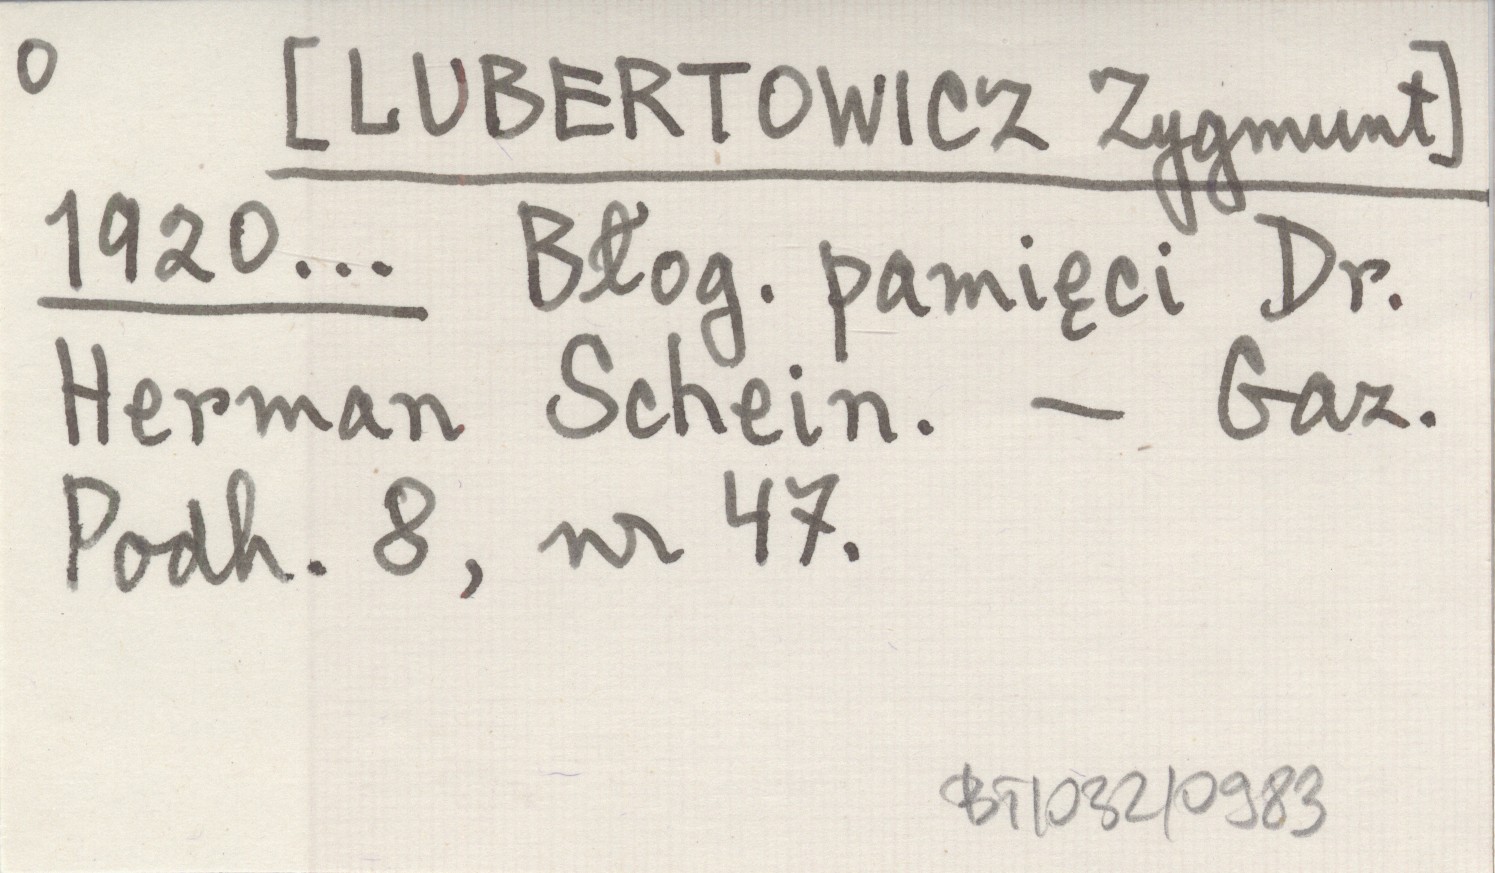 o [LUBERTOWICZ Zygmunt]
1920... Błog. pamięci Dr.
Herman Schein. — Gaz.
Podh. 8, nr 47.
BT/032/0983